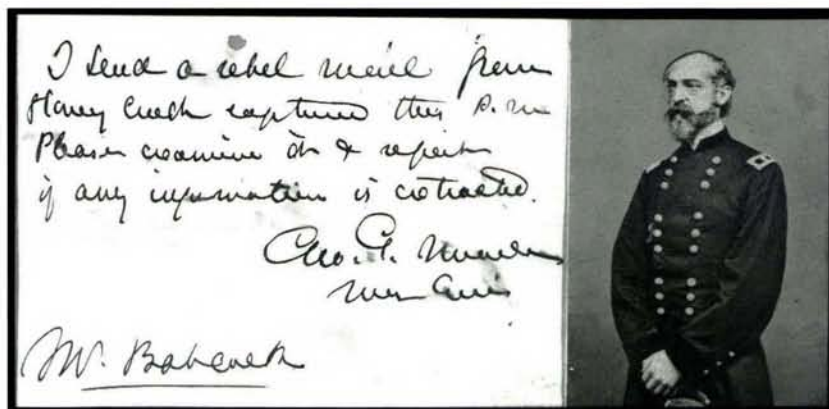 I send a rebel mail from
Stony Creek captured this P. M
Please examine it & report
if any information is extracted.
Geo. G. Meade
Maj Genl
Mr. Babcock